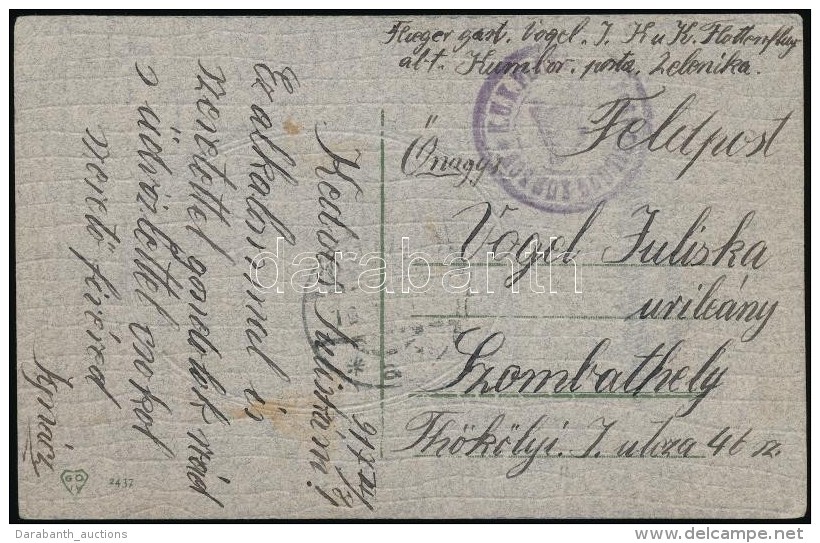 Flieger gast. Vogel. J. K u K. Flottenflug
abt. Kumbor. posta Zelenika.
Feldpost
Önagys.
Vogel Juliska
urileány
Szombathely
Thököly i. I. utcza 46 sz.
Kedves Juliskám!
Ez alkalommal is
szeretettel gondolok rád
s üdvözlettel csókol
szerető fivéred
Ignácz
2437
darabanth
Darabanth_auctions
delcampe.net